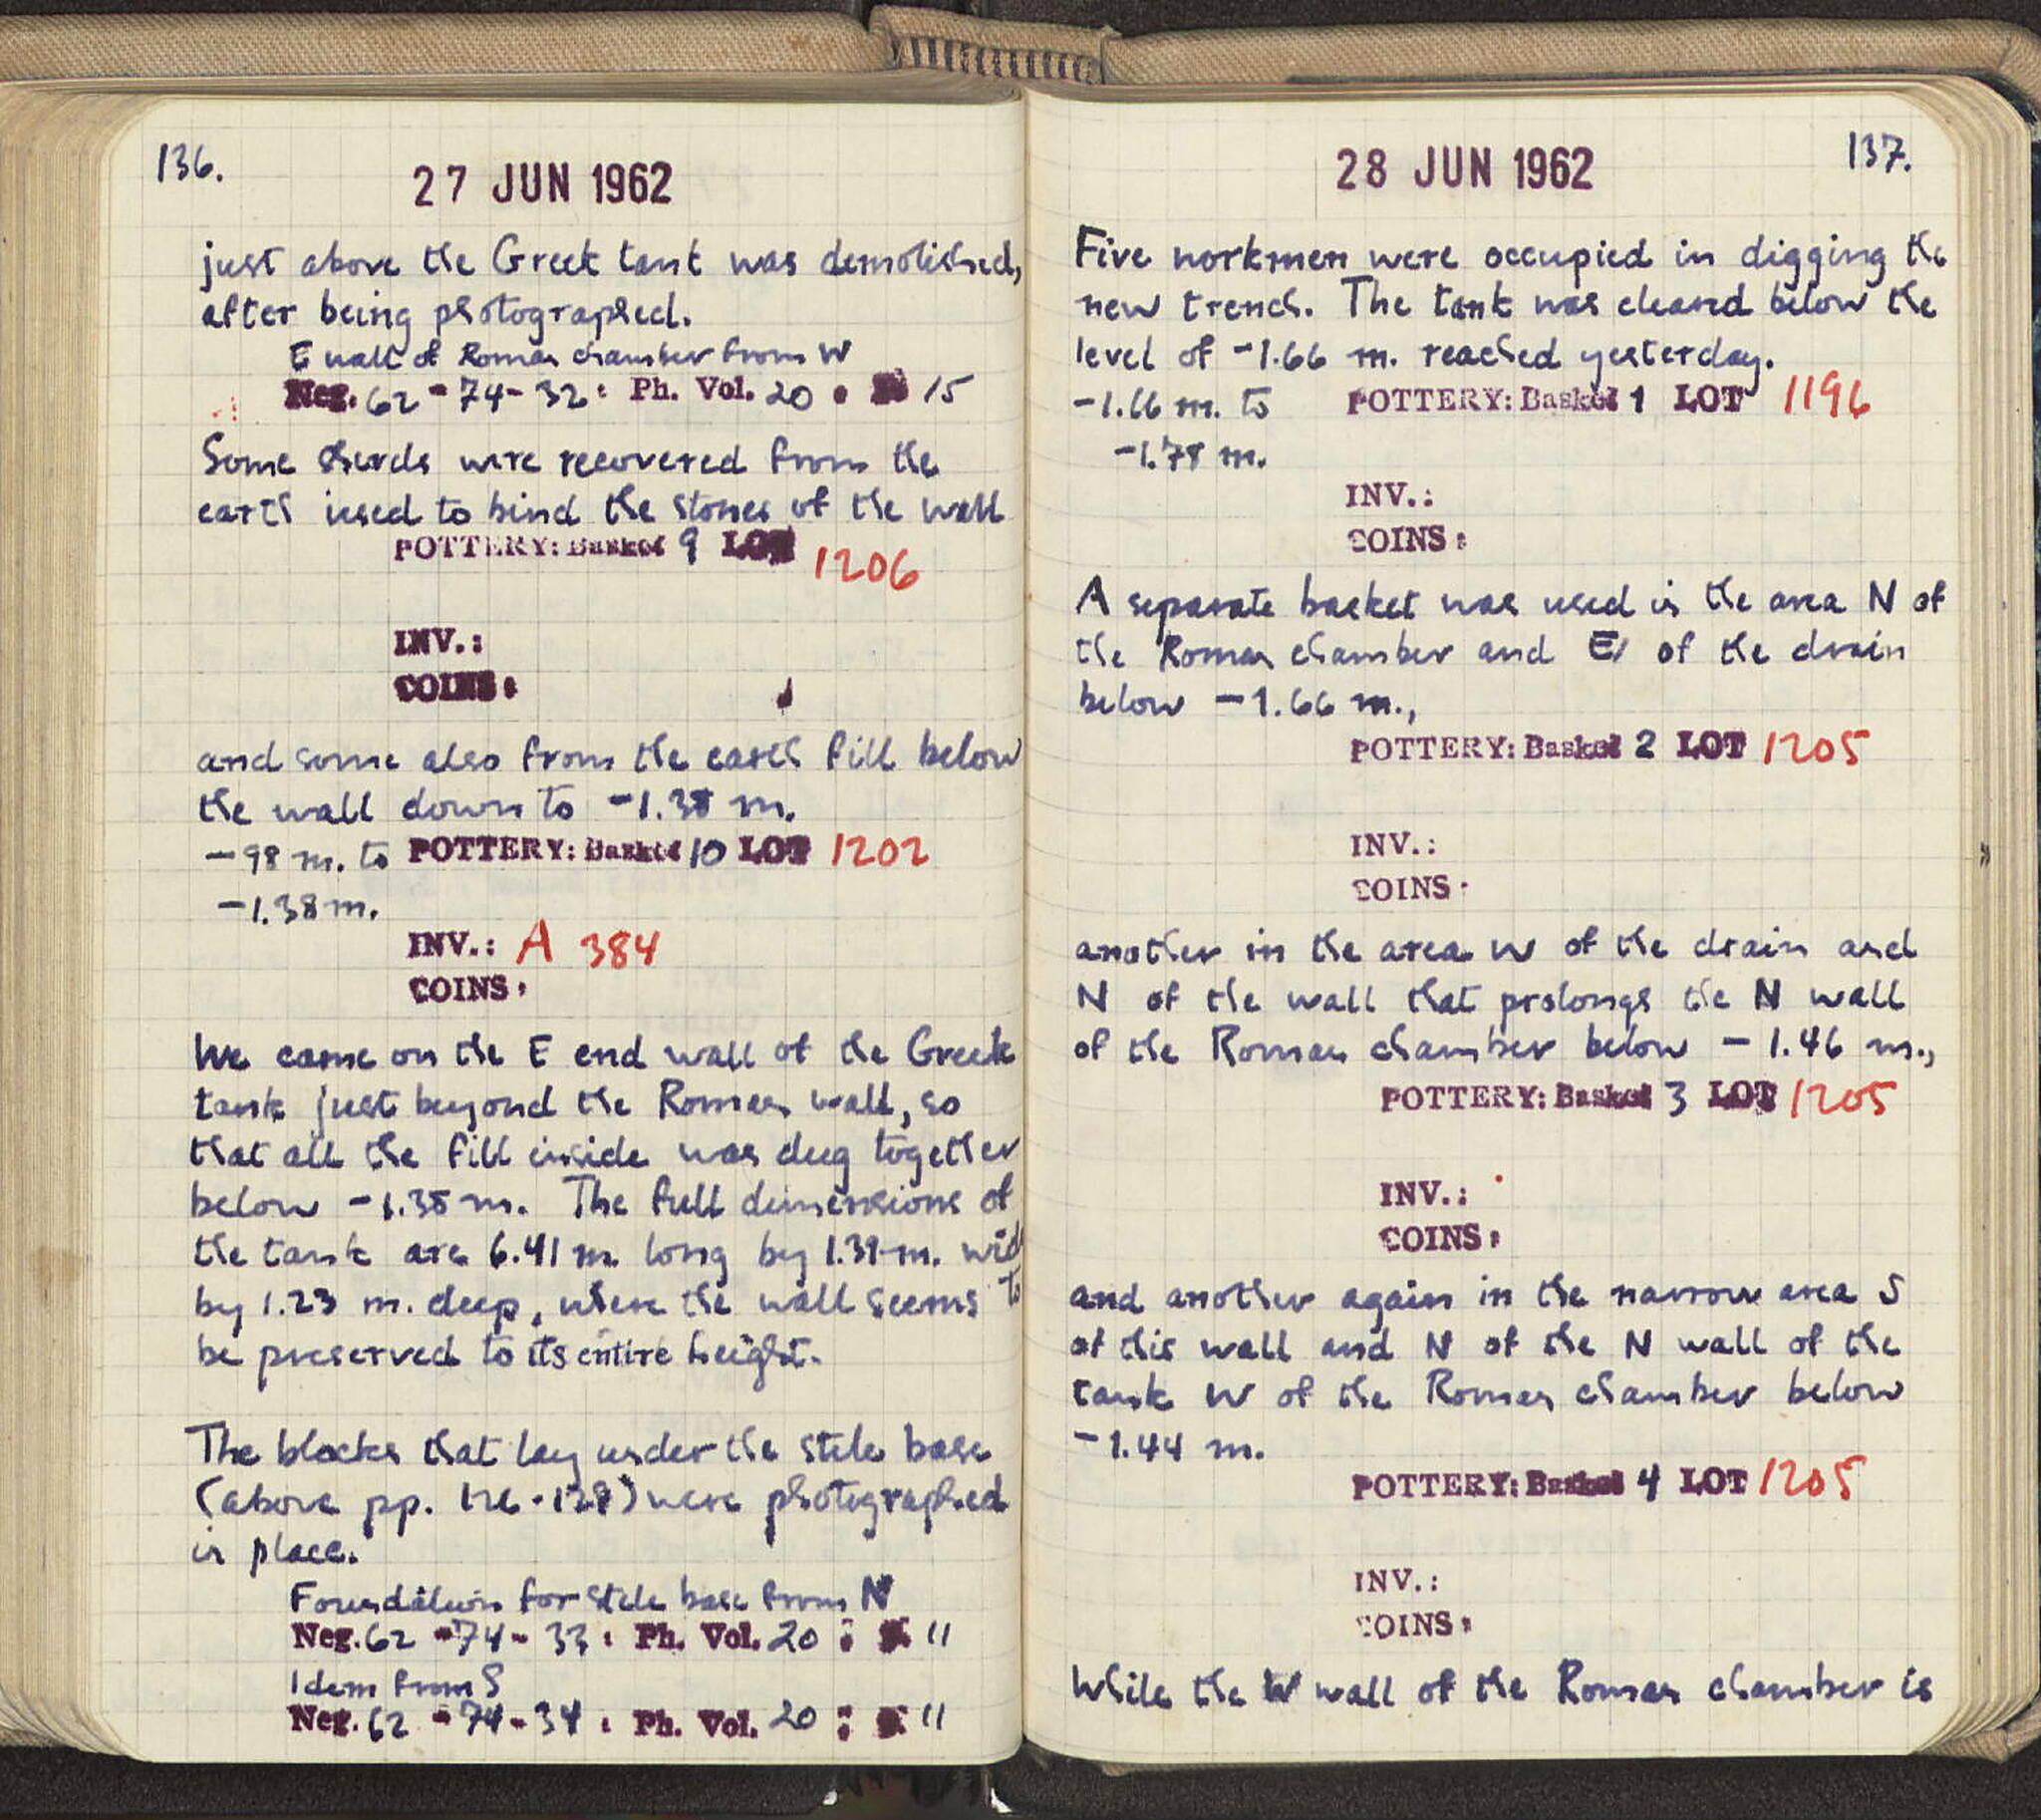 136.
27 JUN 1962
just above the Greek tank was demolished,
after being photographed.
E wall of Roman chamber from W
Neg. 62-74-32: Ph. Vol. 20: 15
Some sherds were recovered from the
earth used to bind the stones of the wall
POTTERY: Basket 9 LOT 1206
INV.:
COINS:
and some also from the earth fill below
the wall down to -1.38 m.
-98 m. to POTTERY: Basket 10 LOT 1202
-1.38 m.
INV.: A 384
COINS:
We came on the E end wall of the Greek
tank just beyond the Roman wall, so
that all the fill inside was dug together
below -1.38 m. The full dimensions of
the tank are 6.41 m. long by 1.39 m. wide
by 1.23 m. deep, where the wall seems to
be preserved to its entire height.
The blocks that lay under the stele base
(above pp. 126-128) were photographed
in place.
Foundation for stele base from N
Neg. 62-74-33: Ph. Vol. 20: 11
Idem from S
Neg. 62-74-34: Ph. Vol. 20: 11
137.
28 JUN 1962
Five workmen were occupied in digging the
new trench. The tank was cleared below the
level of -1.66 m. reached yesterday.
-1.66 m. to POTTERY: Basket 1 LOT 1196
-1.78 m.
INV.:
COINS:
A separate basket was used in the area N of
the Roman chamber and E of the drain
below -1.66 m.,
POTTERY: Basket 2 LOT 1205
INV.:
COINS:
another in the area W of the drain and
N of the wall that prolongs the N wall
of the Roman chamber below -1.46 m.,
POTTERY: Basket 3 LOT 1205
INV.:
COINS:
and another again in the narrow area S
of this wall and N of the N wall of the
tank W of the Roman chamber below
-1.44 m.
POTTERY: Basket 4 LOT 1205
INV.:
COINS:
While the W wall of the Roman chamber is